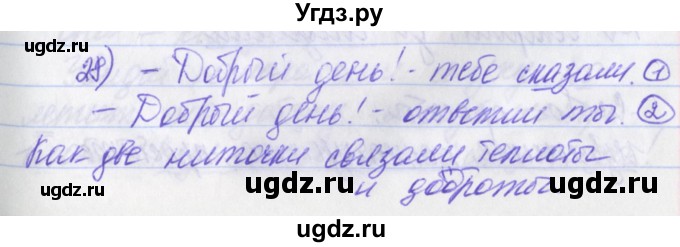 Угдз.ру
28) – Добрый день! - тебе сказали. 1
– Добрый день! - ответил ты. 2
Как две ниточки связали теплоты
и доброты
ugdz.ru ugdz.ru ugdz.ru
ugdz.ru ugdz.ru
ugdz.ru ugdz.ru
ugdz.ru